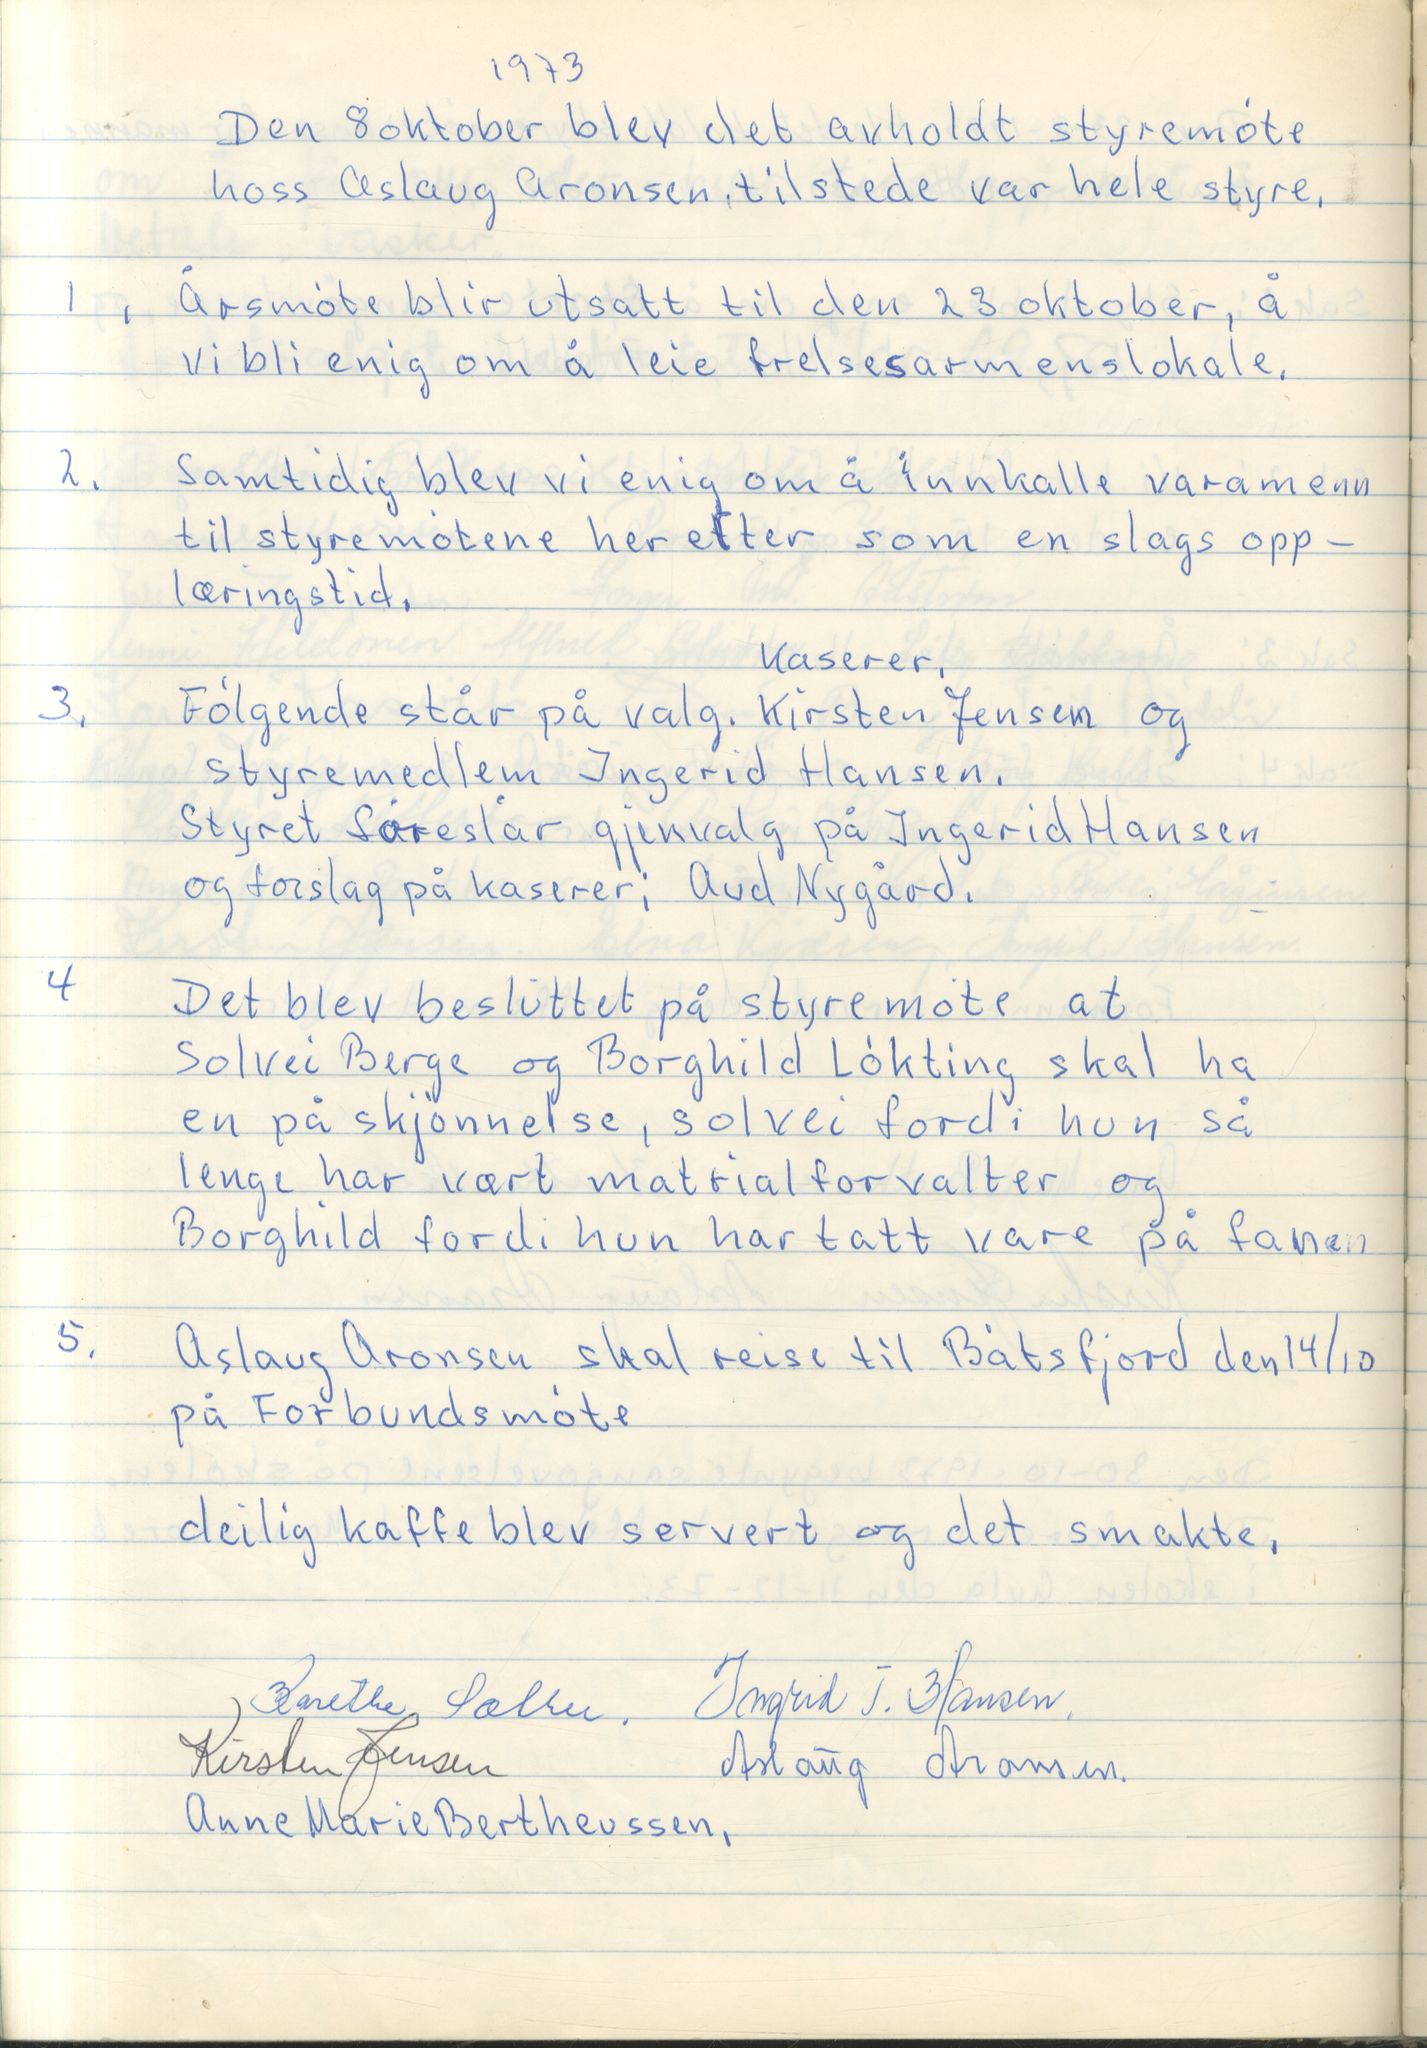 1973
Den 8 oktober blev det avholdt styremóte
hoss Aslaug Aronsen, tilstede var hele styre.
1, Årsmóte blir utsatt til den 23 oktober, å
vi bli enig om å leie frelsesarmenslokale.
2. Samtidig blev vi enig om å innkalle varamenn
til styremótene heretter som en slags opp-
læringstid.
Kaserer.
3. Fólgende står på valg. Kirsten Jensen og
styremedlem Ingerid Hansen.
Styret föreslår gjenvalg på Ingerid Hansen
og forslag på kaserer; Aud Nygård.
4 Det blev beslüttet på styremóte at
Solvei Berge og Borghild Lókting skal ha
en på skjónnelse, solvei fordi hun så
lenge har vært matrialforvalter og
Borghild fordi hun har tatt vare på fanen
5. Aslaug Aronsen skal reise til Båtsfjord den 14/10
på Forbundsmóte
deilig kaffe blev servert og det smakte.
Ingrid T. Hansen.
Kirsten Jensen Aslaūg Aronsen.
Anne Marie Bertheussen.